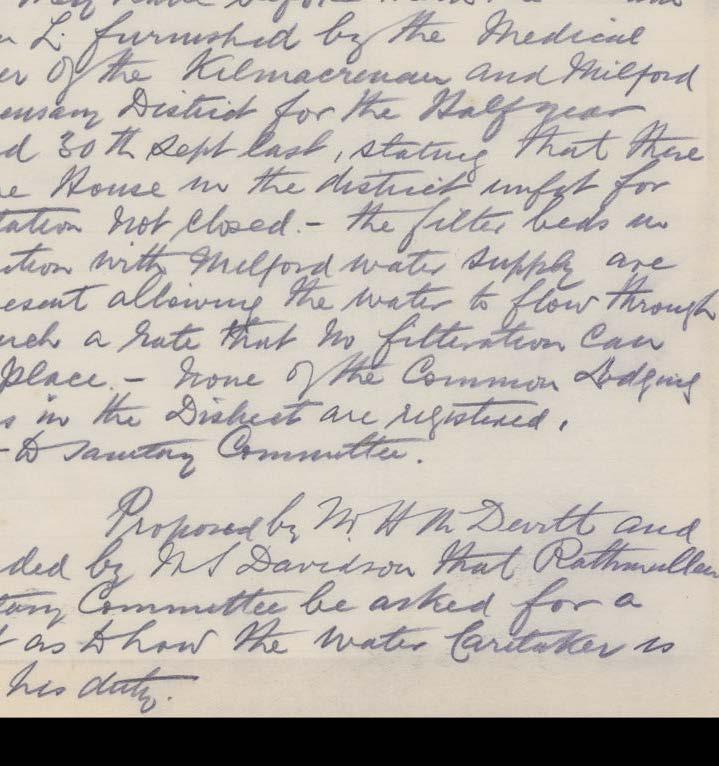 L. furnished by the Medical
er of the Kilmacrenan and Milford
ensary District for the Half year
d 30th Sept last, stating that there
e House in the district unfit for
tation not closed. - the filter beds in
tion with Milford water supply are
esent allowing the water to flow through
uch a rate that no filteration can
place. - none of the Common Lodging
s in the District are registered.
- To Sanitary Committee.
Proposed by W. H McDevitt and
ded by Davidson that Rathmullan
tary Committee be asked for a
t as to how the water Caretaker is
his duty.